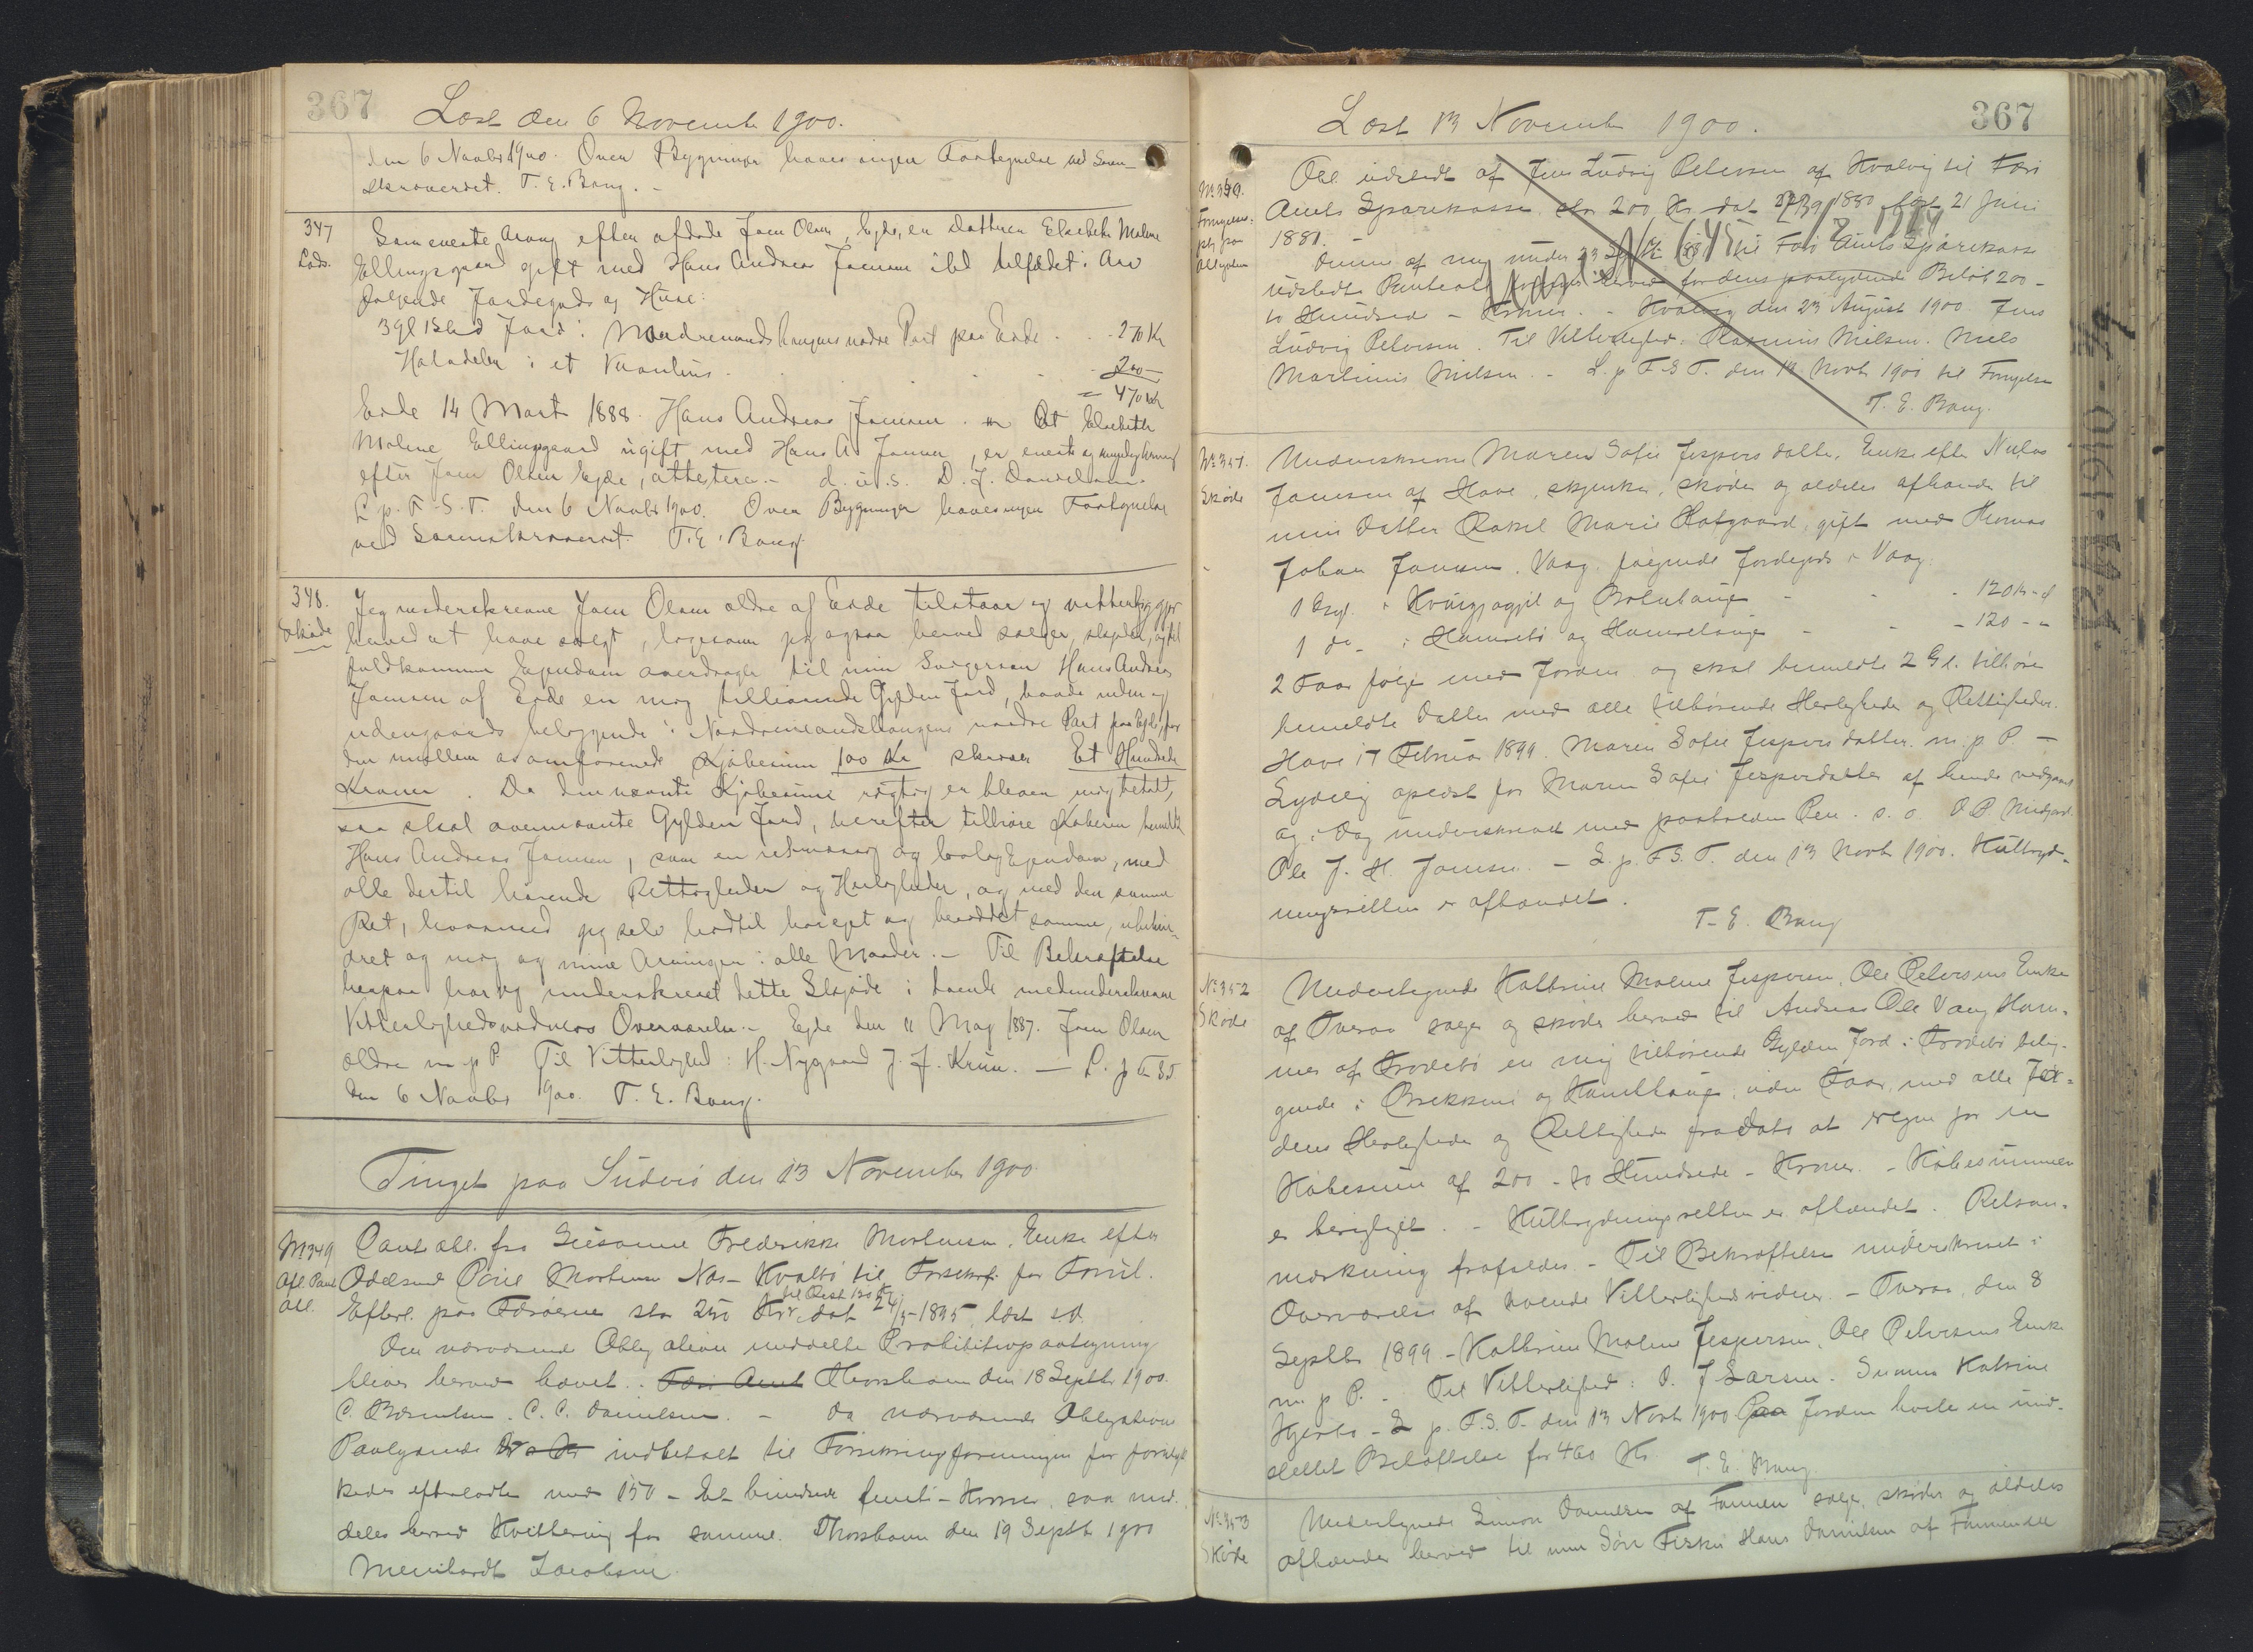 367
Læst den 6 November 1900.
den 6 Novbr 1900. Over Bygninger haves ingen Fortegnelse ved Soren-
skriveriet. T. E. Bang. -
347
Som eneste Arving efter afdøde Joen Olsen, Ejde, er Datteren Elsebeth Malene
Lods.
Ellingsgaard gift med Hans Andreas Joensen ibd tilfaldet i Arv
følgende Jordegods og Huse:
3 Gl 15 Skd Jord i Nordremandshaugens nordre Part paa Eide . . 270 Kr
Halvdelen i et Vaanhus - . . . 200 -
= 470 Kr
Eide 14 Mart 1888. Hans Andreas Joensen. At Elsebeth
Malene Ellingsgaard gift med Hans A Joensen, er eneste og myndig Arving
efter Joen Olsen Ejde, attestere. - d. u. s. D. J. Danielsen.
L. p. F. S. T. den 6 Novbr 1900. Over Bygninger haves ingen Fortegnelse
ved Sorenskriveriet. T. E. Bang.
348.
Skøde
Jeg underskrevne Joen Olsen ældre af Eide tilstaar og vitterliggjør
herved at have solgt, ligesom jeg ogsaa herved sælger, skjøder, og til
fuldkommen Ejendom overdrager til min Svigersøn Hans Andreas
Joensen af Eide en mig tilhørende Gylden Jord, baade inden og
udengaards beliggende i Nordremandshaugens nordre Part paa Ejde, for
den mellem os omforenede Kjøbesum 100 Kr skriver Et Hundrede
Kroner. Da den nævnte Kjøbesum rigtig er bleven mig betalt,
saa skal ovennævnte Gylden Jord, herefter tilhøre Køberen bemeldte
Hans Andreas Joensen, som en retmæssig og lovlig Ejendom, med
alle dertil hørende Rettigheder og Herligheder, og med den samme
Ret, hvormed jeg selv hidtil har ejet og besiddet samme, uhin-
dret og mig og mine Arvinger i alle Maader. - Til Bekræftelse
herpaa har jeg underskrevet dette Skjøde i tvende medunderskrevne
Vitterlighedsvidners Overværelse. - Ejde den 11 Maj 1887. Joen Olsen
ældre m p P. Til Vitterlighed: H. Nygaard J. F. Kruse. - L. p F S T
den 6 Novbr 1900. T. E. Bang.
Tinget paa Suderø den 13 November 1900
No 349
Afl. Pant
Obl.
Pant obl. fra Susanne Frederikke Mortensen, Enke efter
Odelsmd Poul Mortensen Næs - Kvalbø til Forsikrf. for Forul.
til Rest 150 Kr
Efterl. paa Færøerne stor 250 Kr. dat 24/5 - 1895, læst s.D.
Den nærværende Obligationen meddelte Prohibitivpaategning
bliver herved hævet. Fær. Amt Thorshavn den 18 Septbr 1900.
C. Bærentsen. C. C. Danielsen. - Da nærværende Obligations
Paalydende er indbetalt til Forsikringsforeningen for forulyk-
kedes efterladte med 150 - Et hundrede femti - Kroner, saa med-
deles herved Kvittering for samme. Thorshavn den 19 Septbr 1900
Meinhardt Jacobsen.
367
Læst 13 November 1900.
No 350.
Fornyelses-
ptg paa
Obligation
Obl. udstedt af Jens Ludvig Petersen af Hvalvig til Færø
Amts Sparekasse stor 200 Kr. dat 1880 læst 21 Juni
1881. -
Denne af mig under 23 til Færø Amts Sparekasse
udstedte Panteobl. herved for dens paalydende Beløb 200 -
to Hundrede - Kroner. - Hvalvig den 23 August 1900. Jens
Ludvig Petersen. Til Vitterlighed: Rasmus Nielsen. Niels
Martinus Nielsen. - L. p F S T. den 13 Novb 1900 til Fornyelse
T. E. Bang.
No 351.
Skøde
Underskrevne Maren Sofie Jespersdatter, Enke efter Niclas
Joensen af Hove, skjenker, skøder og aldeles afhænder til
min Datter Rakel Marie Hofgaard, gift med Thomas
Johan Joensen, Vaag, følgende Jordegods i Vaag:
1 Gyl. i og - . 120 Kr - d
1 do - i Hamrebø og Hamrehauge - . - 120 - "
2 Faar følge med Jorden og skal bemeldte 2 Gl. tilhøre
bemeldte Datter med alle tilhørende Herligheder og Rettigheder.
Hove 17 Februar 1899. Maren Sofie Jespersdatter m. p. P. -
Lydelig oplæst for Maren Sofie Jespersdatter af hende vedgaaet
og i Dag underskrevet med paaholden Pen. s. o. O P. Nidgaard.
Ole J. H. Joensen. - L. p. F. S. T. den 13 Novb 1900. Kuttryd-
ningsretten er afhændet.
T. E. Bang
No 352
Skøde
Undertegnede Kathrine Malene Jespersen, Ole Petersens Enke
af Tveraa sælger og skøder herved til Andreas Ole Vang Ham-
mer af Frodebø en mig tilhørende Gylden Jord i Frodebø belig-
gende i Brekkeni og Hamlhauge, uden Faar, med alle Jor-
dens Herligheder og Rettigheder fra Dato at regne for en
Købesum af 200 - to Hundrede - Kroner. - Købesummen
er berigtiget. - Kuttrydningsretten er afhændet. Retsan-
mærkning frafaldes. - Til Bekræftelse underskrevet i
Overværelse af tvende Vitterlighedsvidner. - Tveraa, den 8
Septbr 1899 - Kathrine Malene Jespersen, Ole Petersens Enke
m. p P. - Til Vitterlighed: O. J Larsen. Katrine
Kjerbo - L p. F. S. T. den 13 Novb 1900. Paa Jorden hvile en uud-
slettet Behæftelse for 460 Kr. T. E. Bang
No 353
Skøde
Undertegnede Simon Danielsen af Famien sælger, skøder og aldeles
afhænder herved til min Søn Fisker Hans Danielsen af Famien